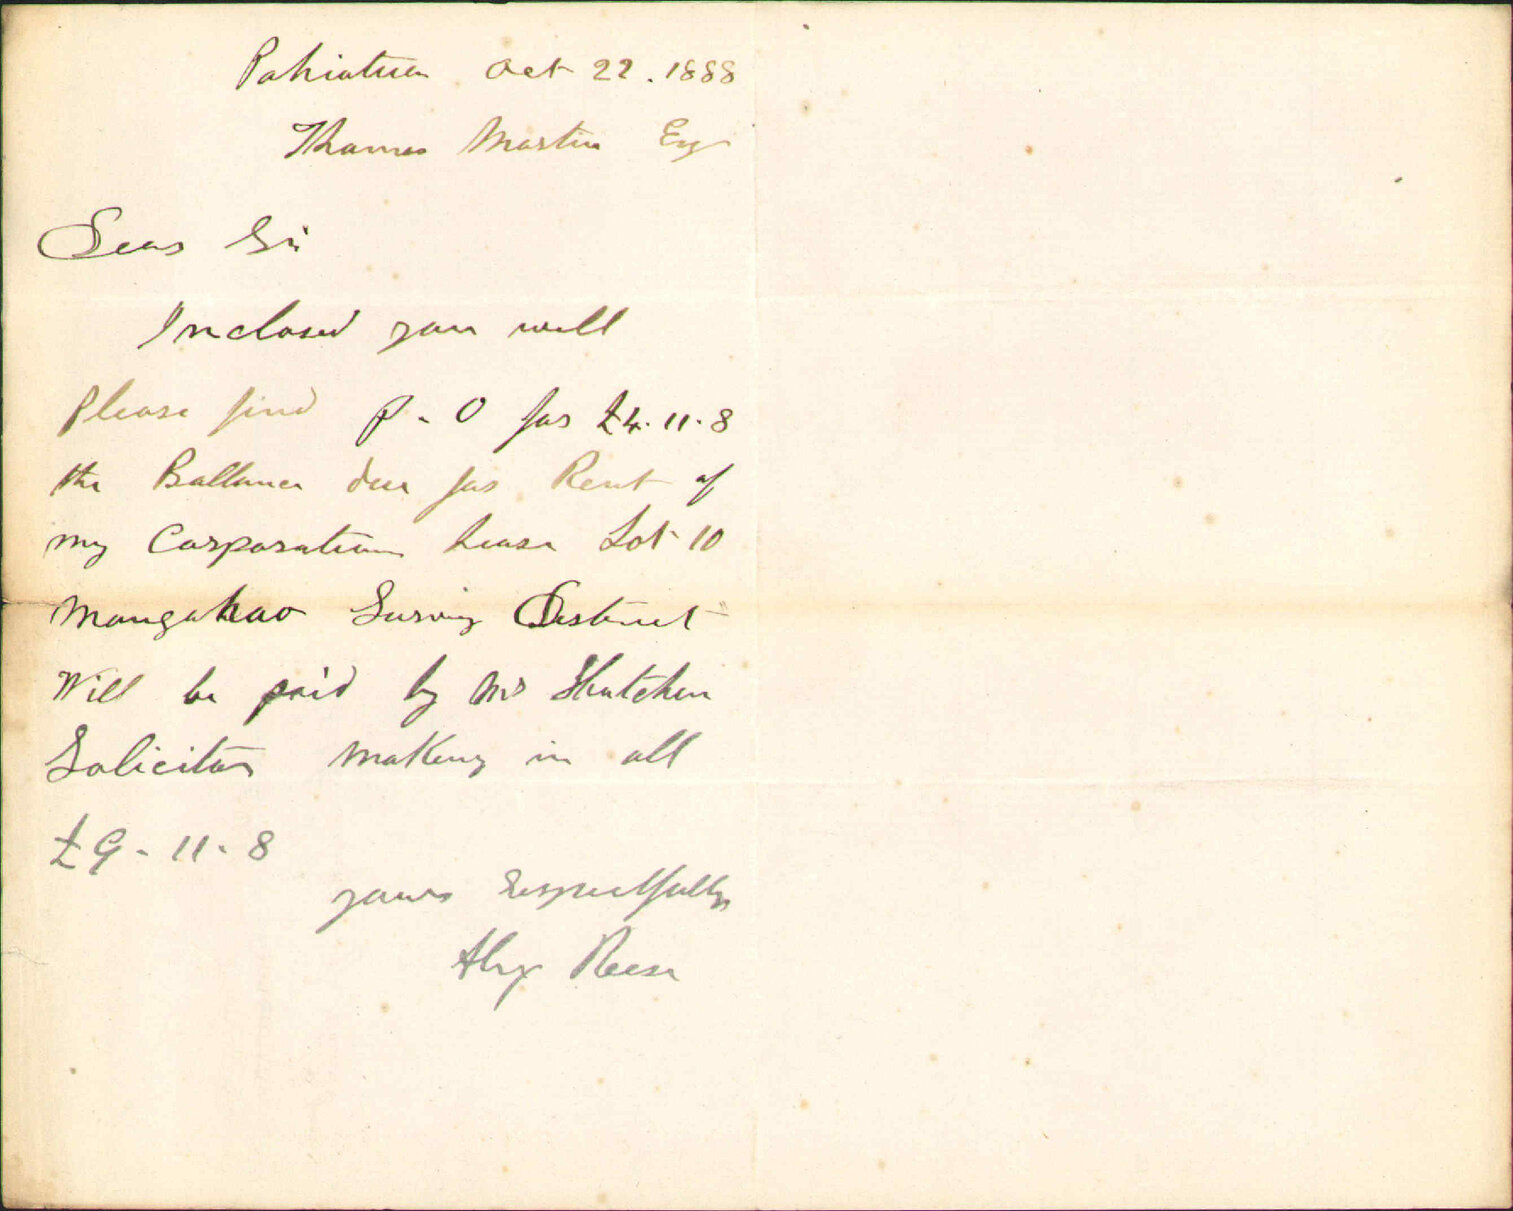 Pahiatua Oct 22. 1888
Thomas Martin Esq
Dear Sir
Inclosed you will
please find P. O for £4. 11. 8
the Ballance due for Rent of
my Corporation Lease Lot 10
Mangahao Survey District
Will be paid by Mr
Solicitor Making in all
£9 - 11 - 8
yours respectfully
Alex Reese